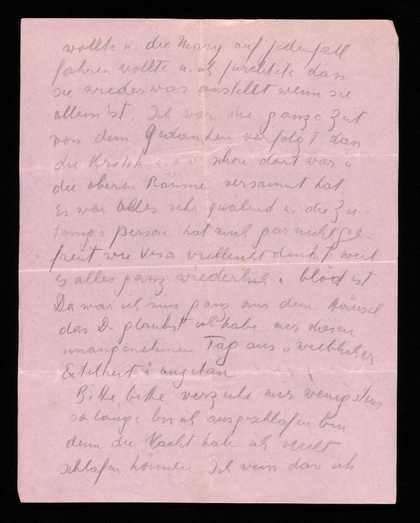 wollte u. die Mary auf jedenfall
fahren wollte u. ich fürchtete dass
sie wieder was anstellt wenn sie
allein ist. Ich war die ganze Zeit
von dem Gedanken verfolgt dass
die schon dort war u
die oberen Räume versäumt hat
Es war alles sehr qualend u. die Zei-
tungs person hat mich gar nicht gef-
reut wie Visa vielleicht denkt weil
es alles ganz wiederlich u. blöd ist
Da war ich nun ganz aus dem Häusel
das D. glaubst ich habe mir diesen
unangenehmen Tag aus " weiblicher
Eitelkeit " angetan
Bitte bitte verzeihe mir wenigstens
so lange bis ich ausgeschlafen bin
denn die Nacht habe ich nicht
schlafen können. Ich weiss dass ich